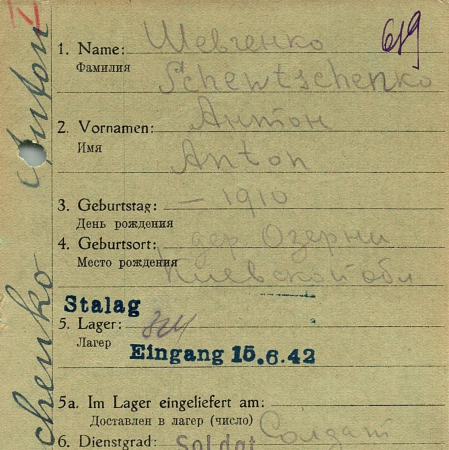 619
1. Name: Шевченко
Фамилия Schewtschenko
2. Vornamen: Антон
Имя Anton
3. Geburtstag: — 1910
День рождения
4. Geburtsort: дер Озерни
Место рождения Киевской обл
Stalag
5. Lager: 324
Лагерь
Eingang 15.6.42
5a. Im Lager eingeliefert am:
Доставлен в лагерь (число)
6. Dienstgrad: Soldat Солдат
chenko Anton